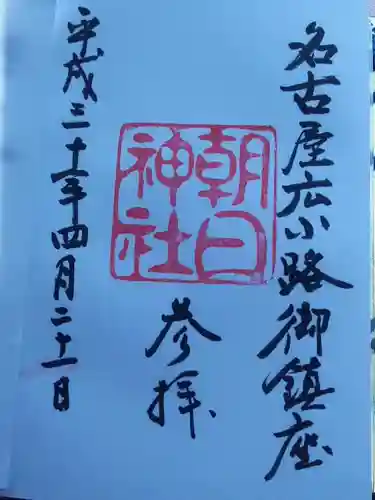 名古屋広小路御鎮座
朝日
神社
参拝
平成三十一年四月二十一日